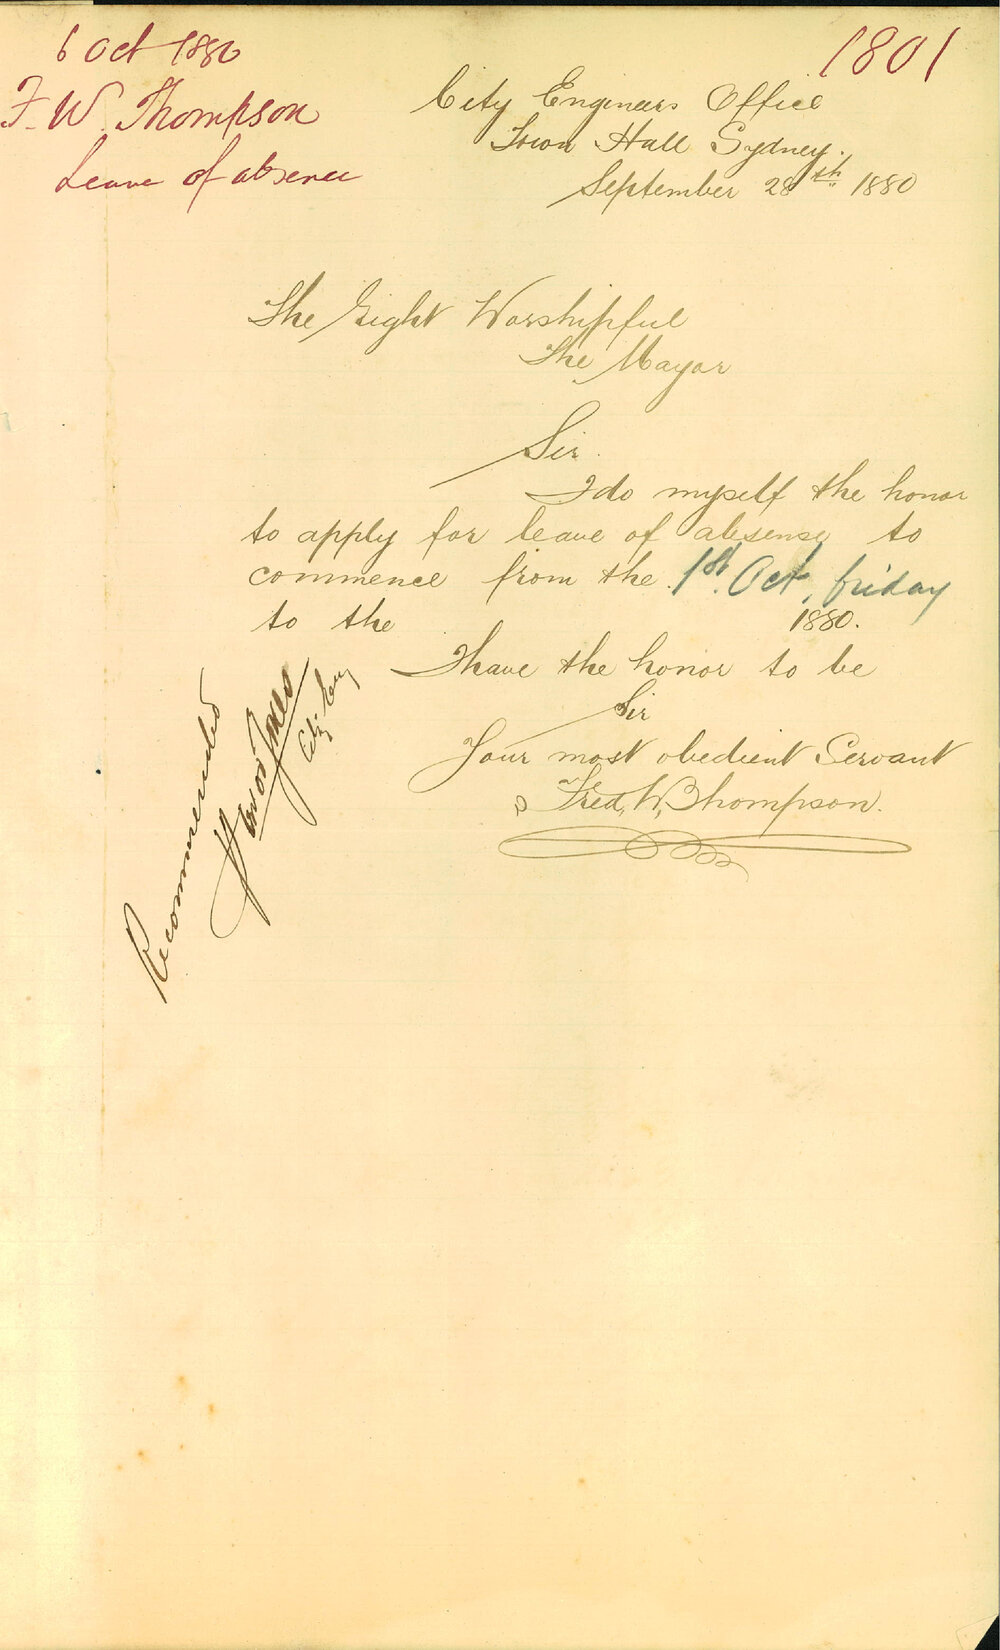 6 Oct 1880
F. W. Thompson
Leave of absence
1801
City Engineers Office
Town Hall Sydney.
September 28th 1880
The Right Worshipful
The Mayor
Sir.
I do myself the honor
to apply for leave of absense to
commence from the 1st Oct, friday
to the 1880.
I have the honor to be
Sir
Your most obedient Servant
Fred, W, Thompson.
Recommended
City Eng